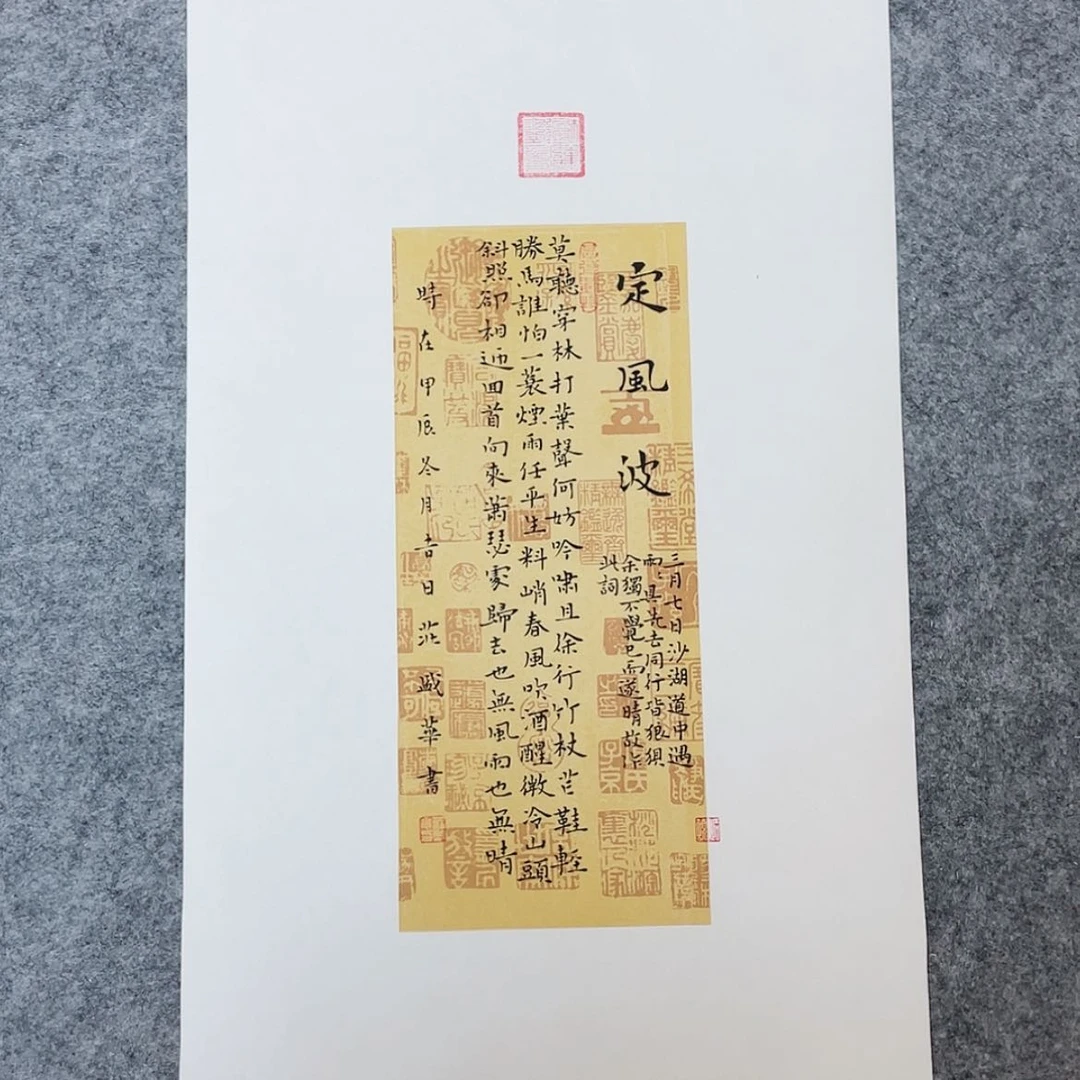 定風波
三月七日沙湖道中遇
雨〻具先去同行皆狼狽
余獨不覺已而遂晴故作
此詞
莫聽穿林打葉聲何妨吟嘯且徐行竹杖芒鞋輕
勝馬誰怕一蓑煙雨任平生料峭春風吹酒醒微冷山頭
斜照卻相迎回首向來蕭瑟處歸去也無風雨也無晴
時在甲辰冬月吉日莊盛華書